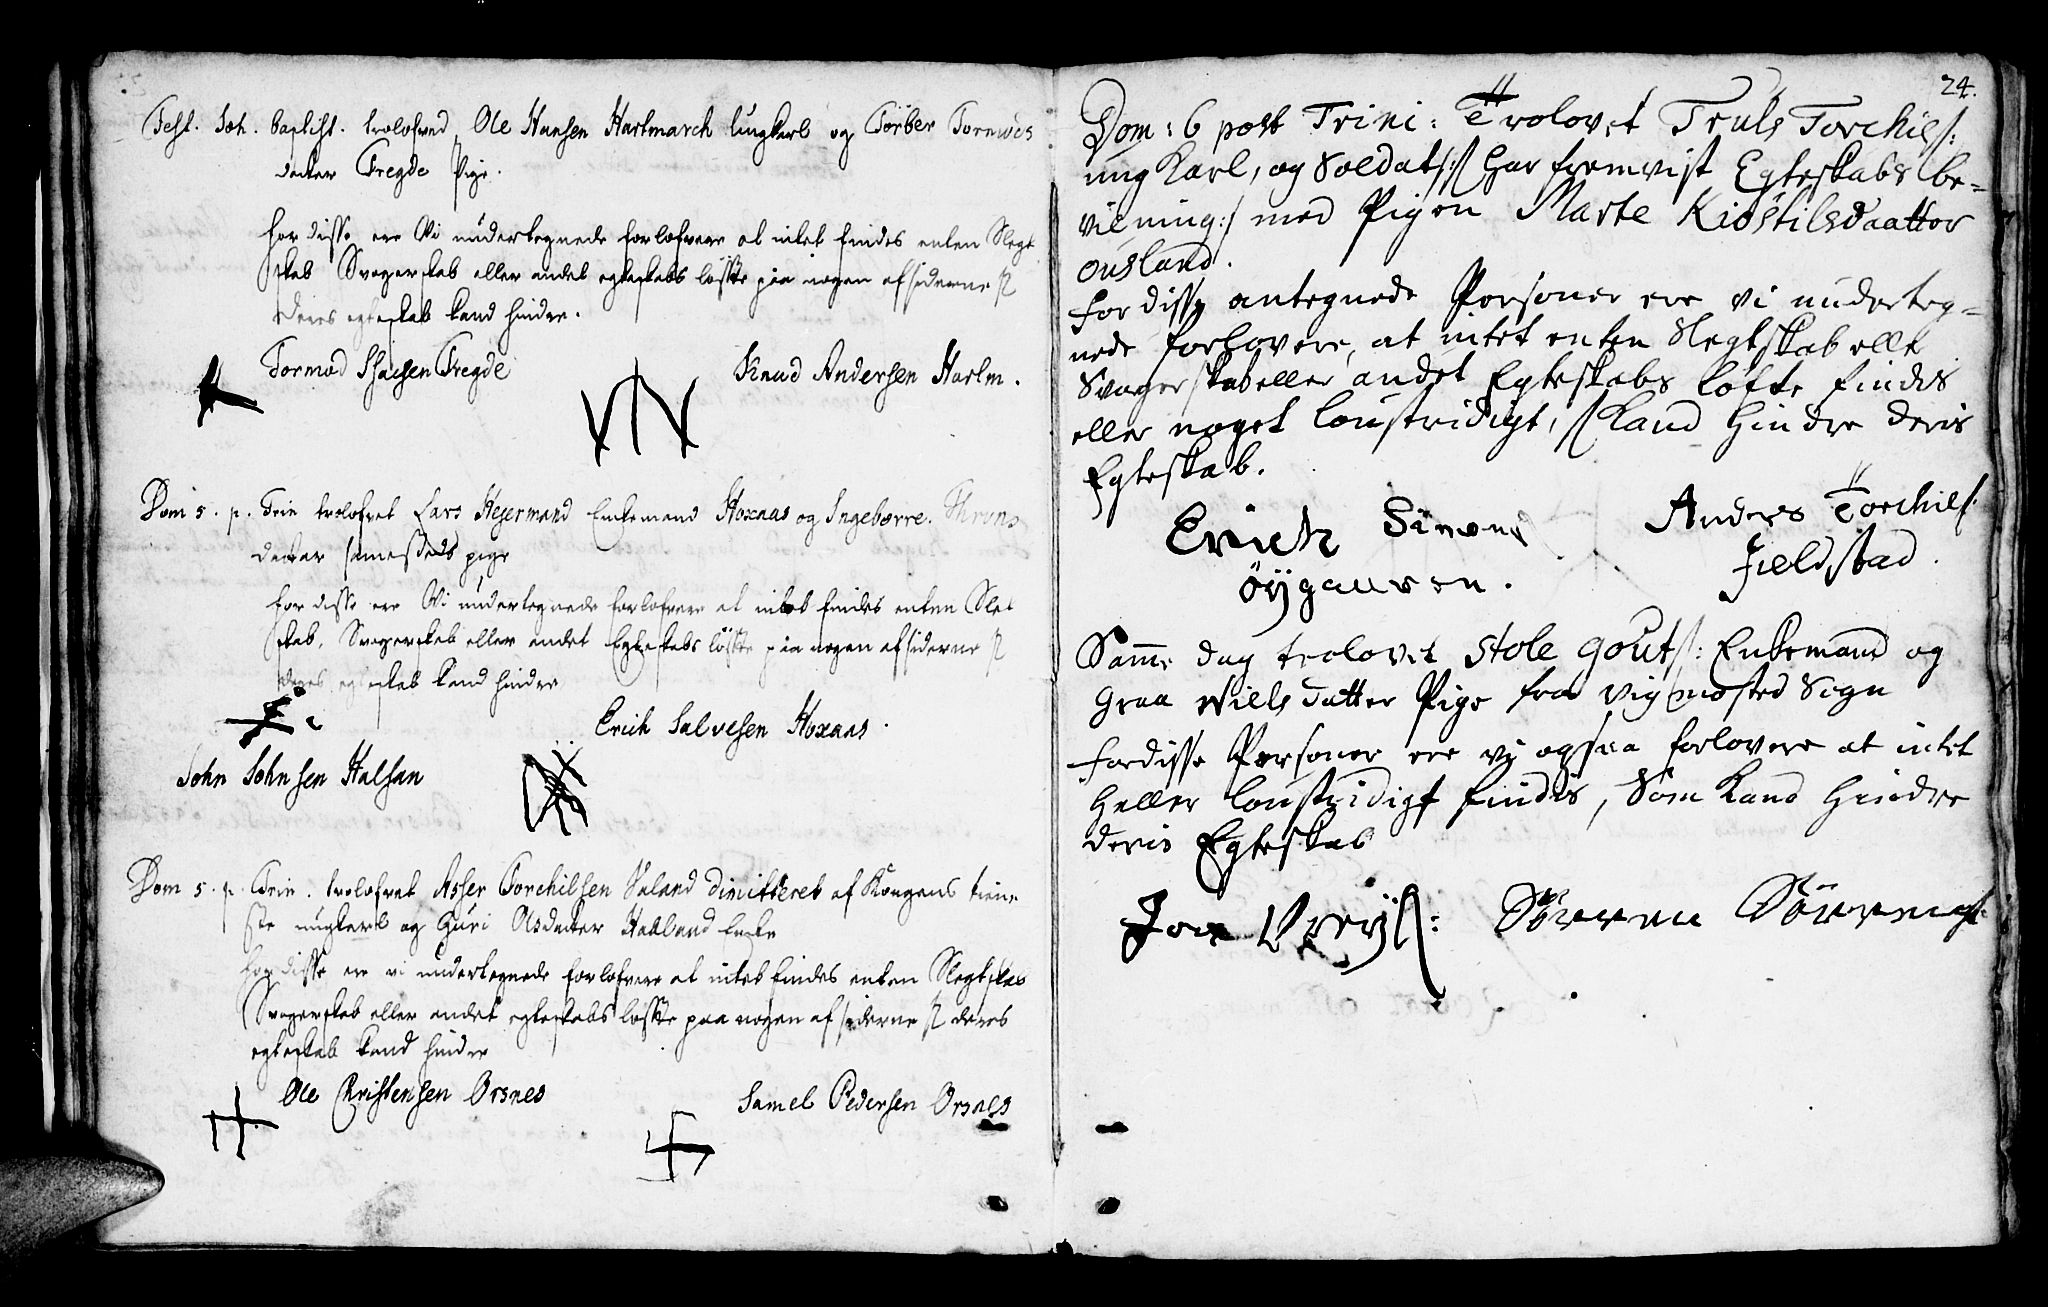 Fest. Joh. Baptist. trolofved Ole Hansen Hartmarch Ungkarl og Torber Tormods
datter Tregde Pige.
For disse ere Vi undertegnede forlofvere at intet findes enten Slegt
skab Svogerskab eller andet egteskabs löffte paa nogen af siderne s
deres egteskab kand hindre.
Tormod Isacsen Tregde
Knud Andersen Hartm.
Dom 5. p. Trin trolofvet Lars Hejermand Enkemand Hoxaas og Ingeborre. Throns
datter samesteds pige
For disse ere Vi undertegnede forlofvere at intet findes enten Slet
skab, Svogerskab eller andet Egteskabs löffte paa nogen af siderne s
deres egteskab kand hindre
Erich Salvesen Hoxaas.
John Johnsen Halsan
Dom 5. p. Trin. trolofvet Asser Torchilsen Valand dimitteret af Kongens tiene
ste ungkarl og Guri Olsdatter Habland Enke
For disse ere vi undertegnede forlofvere at intet findes enten Slegtskab
Svogerskab eller andet egteskabs löffte paa nogen af siderne s deres
egteskab kand hindre
Ole Christensen Orsnes
Samel Pedersen Orsnes
24.
Dom: 6 post Trini: Trolovet Truls Torchils:
ung Karl, og Soldat /:s har fremvist Egteskabs be=
vilning:/ med Pigen Marte Kiöstilsdaatter
Ousland.
For disse antegnede Personer ere vi underteg=
nede forlovere, at intet enten Slegtskab elle
Svogerskab eller andet Egteskabs löfte findis
eller noget loustridigt, s kand hindre deris
Egteskab.
Erich Simens
Öygauren.
Anders Torchils:
Jieldstad.
Samme dag trolovet Stole Gouts: Enkemand og
Graa Niels Datter Pige fra Vigmosted Sogn
For disse Personer ere vi ogsaa forlovere at intet
heller loustridigt findis, som kand hindre
deris Egteskab
Jon
Sörren Sörrens: